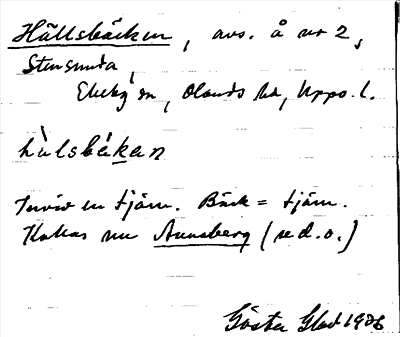 Hällsbäcken, avs. å nr 2,
Stensunda,
Ekeby sn, Olands hd, Upps. l.
hälsbäkan
Invid en tjärn. Bäck = tjärn.
Kallas nu Annsberg (se d. o.)
Gösta Glad 1936